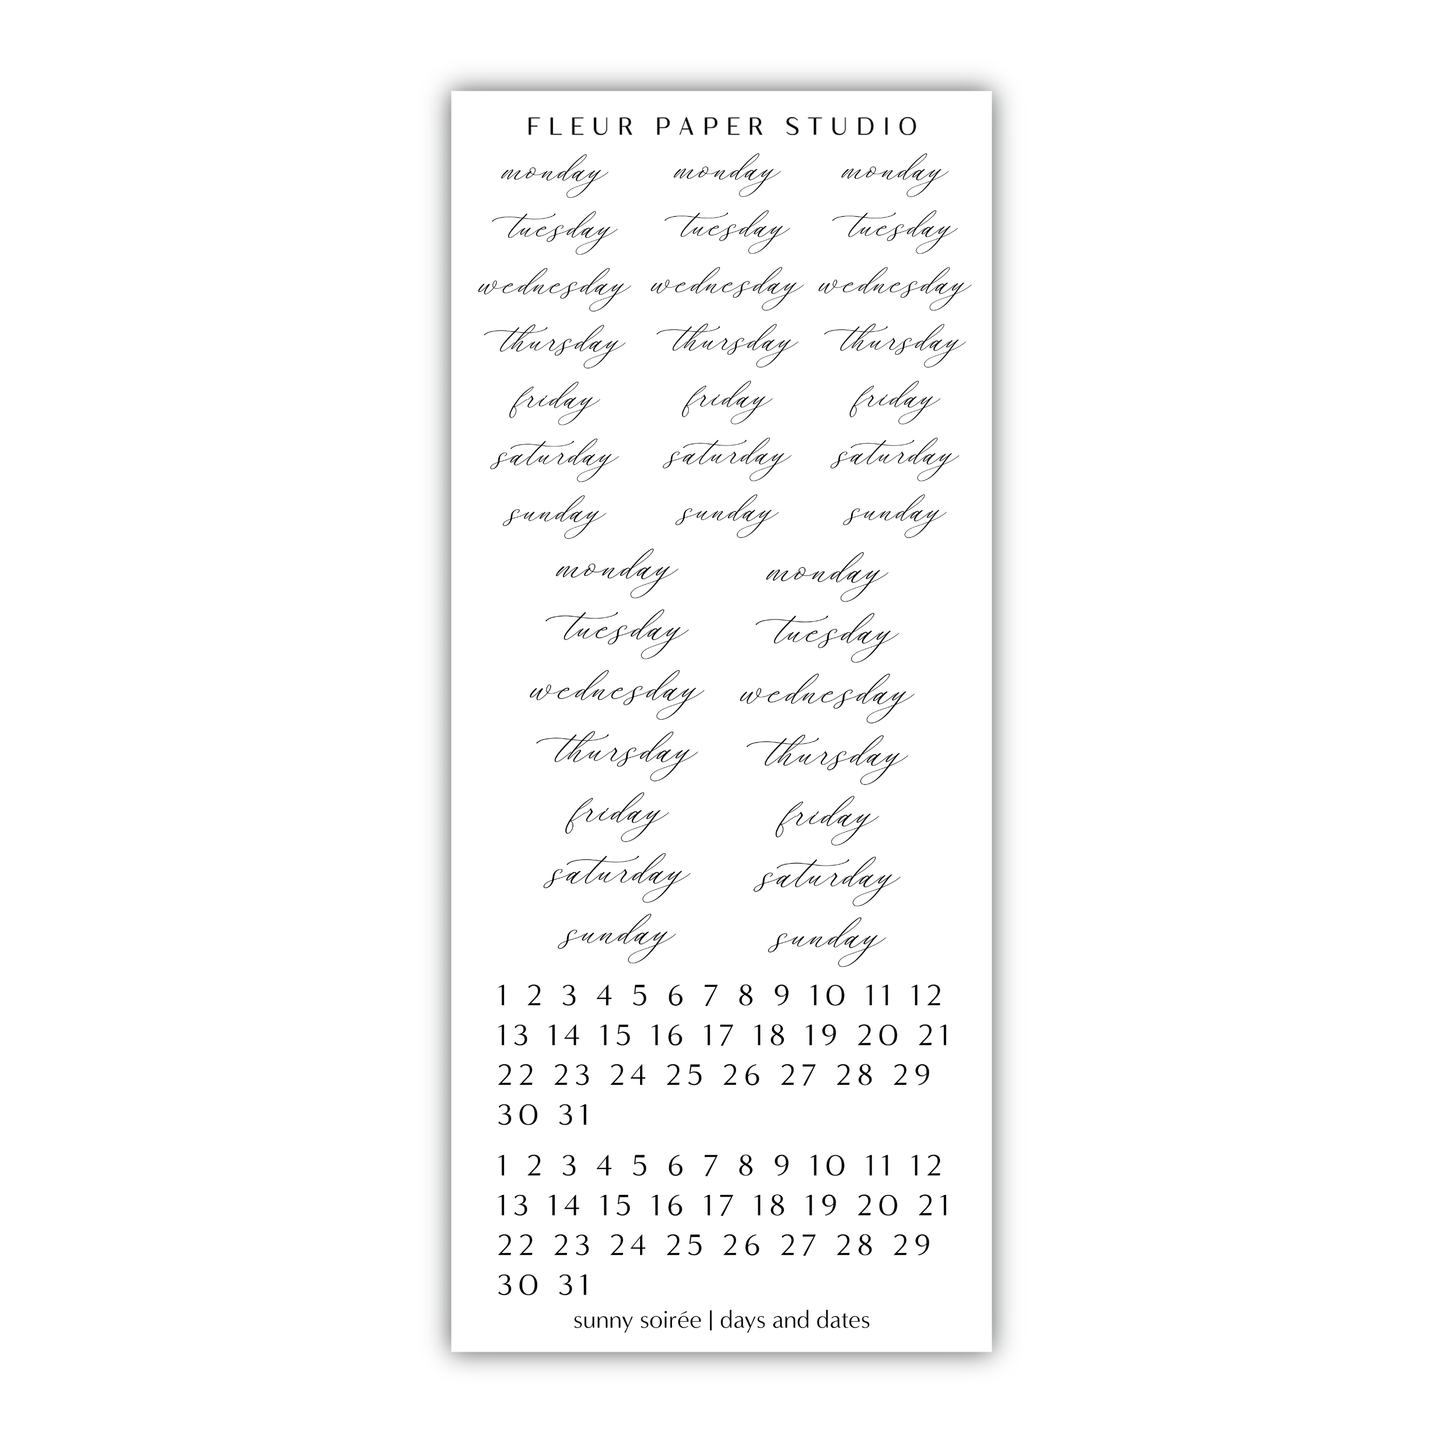 FLEUR PAPER STUDIO
monday monday monday
tuesday tuesday tuesday
wednesday wednesday wednesday
thursday thursday thursday
friday friday friday
saturday saturday saturday
sunday sunday sunday
monday monday
tuesday tuesday
wednesday wednesday
thursday thursday
friday friday
saturday saturday
sunday sunday
1 2 3 4 5 6 7 8 9 10 11 12
13 14 15 16 17 18 19 20 21
22 23 24 25 26 27 28 29
30 31
1 2 3 4 5 6 7 8 9 10 11 12
13 14 15 16 17 18 19 20 21
22 23 24 25 26 27 28 29
30 31
sunny soirée | days and dates